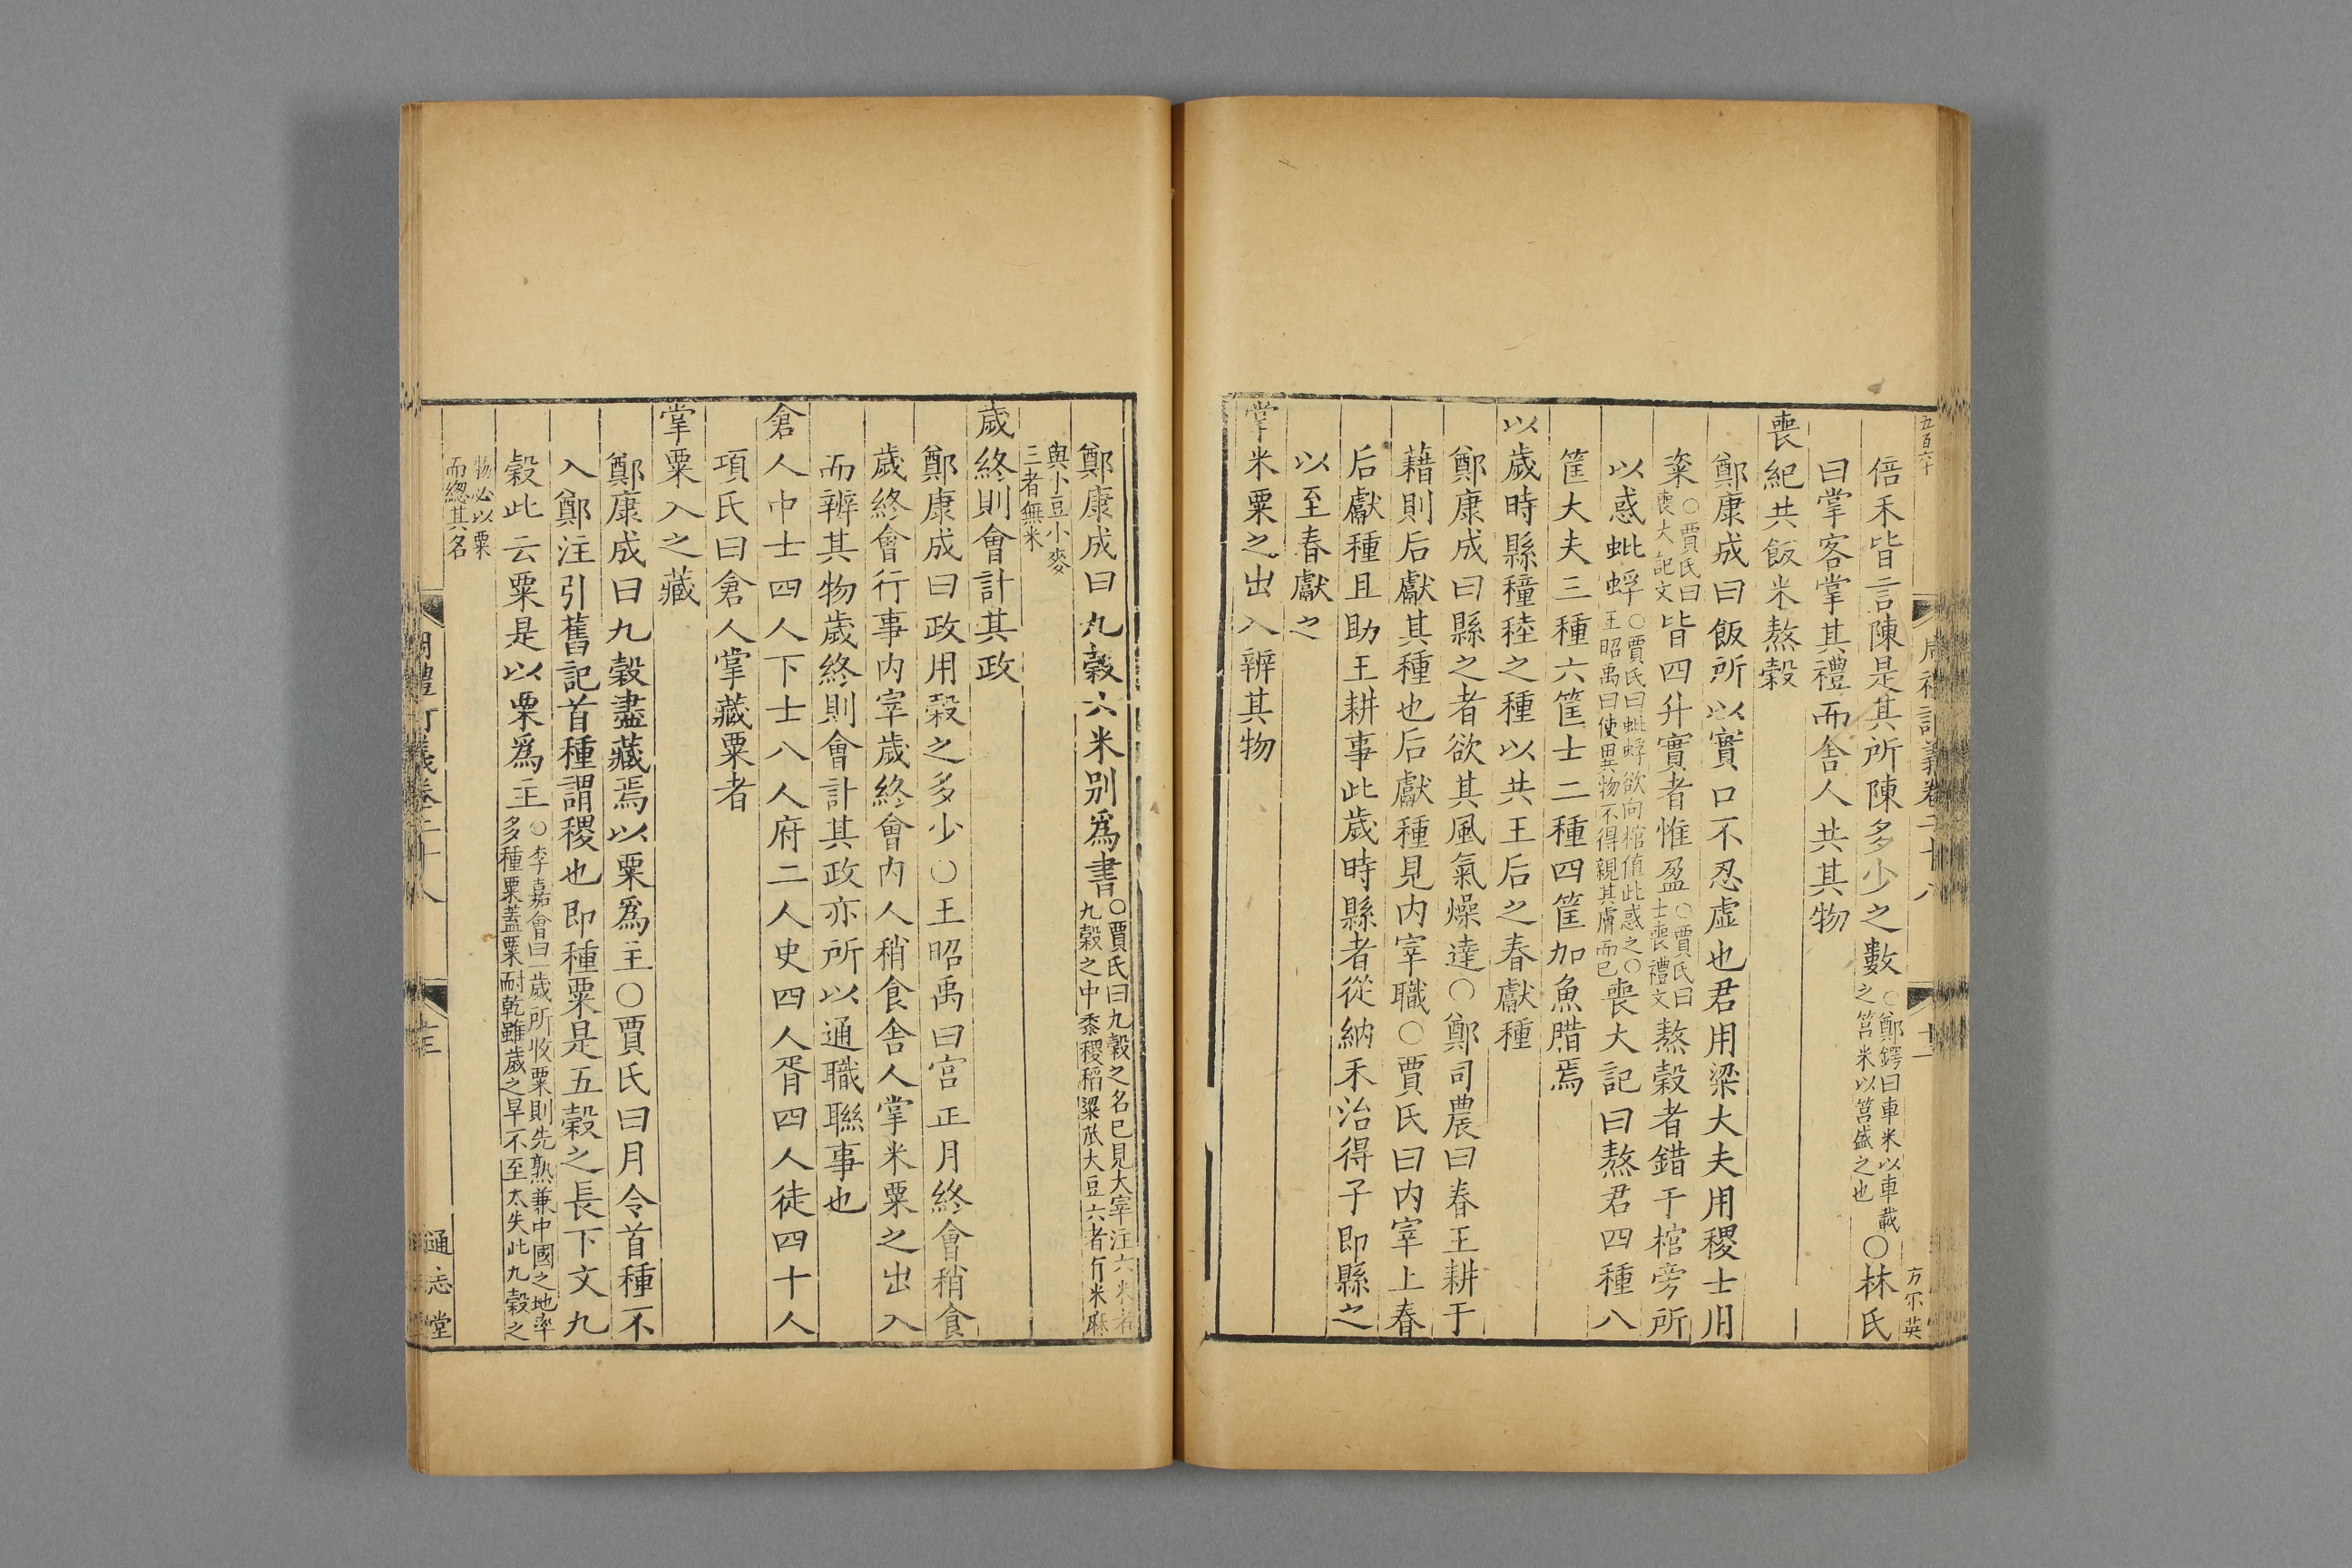 五百六十
倍禾皆言陳是其所陳多少之數○鄭鍔曰車米以車載之筥米以筥盛之也○林氏
曰掌客掌其禮而舍人共其物
喪紀共飯米熬穀
鄭康成曰飯所以實口不忍虛也君用梁大夫用稷士用
粢○賈氏曰喪大記文皆四升實者惟盈○賈氏曰士喪禮文熬穀者錯于棺旁所
以惑蚍蜉○賈氏曰蚍蜉欲向棺值此惑之○王昭禹曰使異物不得親其膚而已喪大記曰熬君四種八
筐大夫三種六筐士二種四筐加魚腊焉
以歲時縣穜稑之種以共王后之春獻種
鄭康成曰縣之者欲其風氣燥達○鄭司農曰春王耕于
藉則后獻其種也后獻種見內宰職○賈氏曰內宰上春
后獻種且助王耕事此歲時縣者從納禾治得子即縣之
以至春獻之
掌米粟之出入辨其物
十二
方不英
鄭康成曰九穀六米別爲書○賈氏曰九穀之名已見大宰注六米者九穀之中黍稷稻粱苽大豆六者有米麻
與小豆小麥三者無米
歲終則會計其政
鄭康成曰政用穀之多少○王昭禹曰宮正月終會稍食
歲終會行事內宰歲終會內人稍食舍人掌米粟之出入
而辨其物歲終則會計其政亦所以通職聯事也
倉人中士四人下士八人府二人史四人胥四人徒四十人
項氏曰倉人掌藏粟者
掌粟入之藏
鄭康成曰九穀盡藏焉以粟爲主○賈氏曰月令首種不
入鄭注引舊記首種謂稷也即種粟是五穀之長下文九
穀此云粟是以粟爲主○李嘉會曰一歲所收粟則先熟兼中國之地率多種粟蓋粟耐乾雖歲之旱不至太失此九穀之
物必以粟而總其名
周禮訂義卷二十八
十三
通志堂